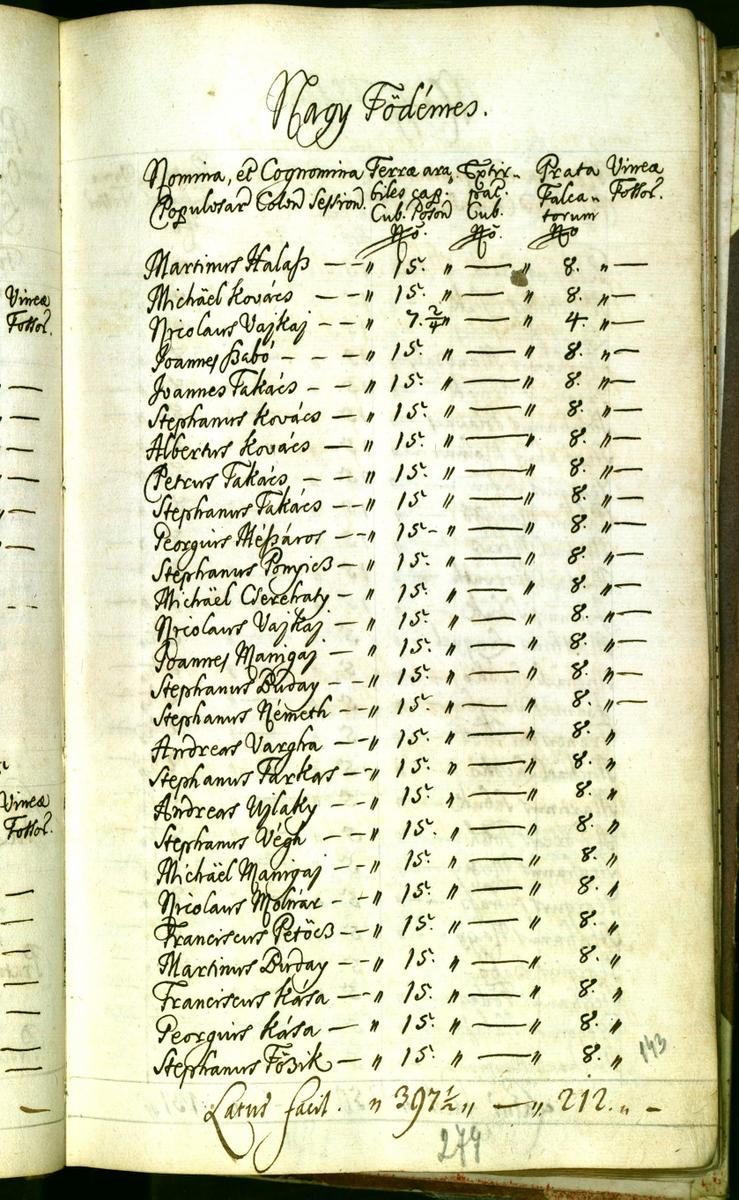 Vineæ
Fossor.
Vineæ
Fossor.
Nagy Födémes.
Nomina, et Cognomina Terræ ara, Extir- Prata Vineæ
Populosar Colon Session. biles cap. pat. Falca- Fossor.
Cub. Poson Cub. torum
No. No. No
Martinus Halaß — — " 15. " — " 8. " —
Michäel Kovács — — " 15. " — " 8. " —
Nicolaus Vajkaj — — " 7. 2/4 " — " 4. " —
Joannes Szabó — — — " 15. " — " 8. " —
Joannes Takács — — " 15. " — " 8. " —
Stephanus Kovács — " 15. " — " 8. " —
Albertus Kovács — " 15. " — " 8. " —
Petrus Takács — — " 15. " — " 8. " —
Stephanus Takács — " 15 " — " 8. " —
Georgius Mészáros — " 15 - " — " 8. " —
Stephanus — " 15. " — " 8. " —
Michäel Cserehaty — " 15. " — " 8. " —
Nicolaus Vajkaj — " 15. " — " 8. " —
Joannes Manigaj — " 15. " — " 8. " —
Stephanus Buday — " 15. " — " 8. " —
Stephanus Németh — — " 15. " — " 8. " —
Andreas Vargha — — " 15. " — " 8. "
Stephanus Farkas — — " 15. " — " 8. "
Andreas Ujlaky — — " 15. " — " 8. "
Stephanus Végh — — " 15. " — " 8. "
Michäel Manigaj — — " 15. " — " 8. "
Nicolaus Molnár — — " 15. " — " 8. "
Franciscus Petöcz — " 15. " — " 8. "
Martinus Buday — — " 15. " — " 8. "
Franciscus Kása — — " 15. " — " 8. "
Georgius Kása — " 15. " — " 8. "
Stephanus Főzik — " 15. " — " 8. "
143
Latus facit. " 397 1/2 " — " 212. " —
274